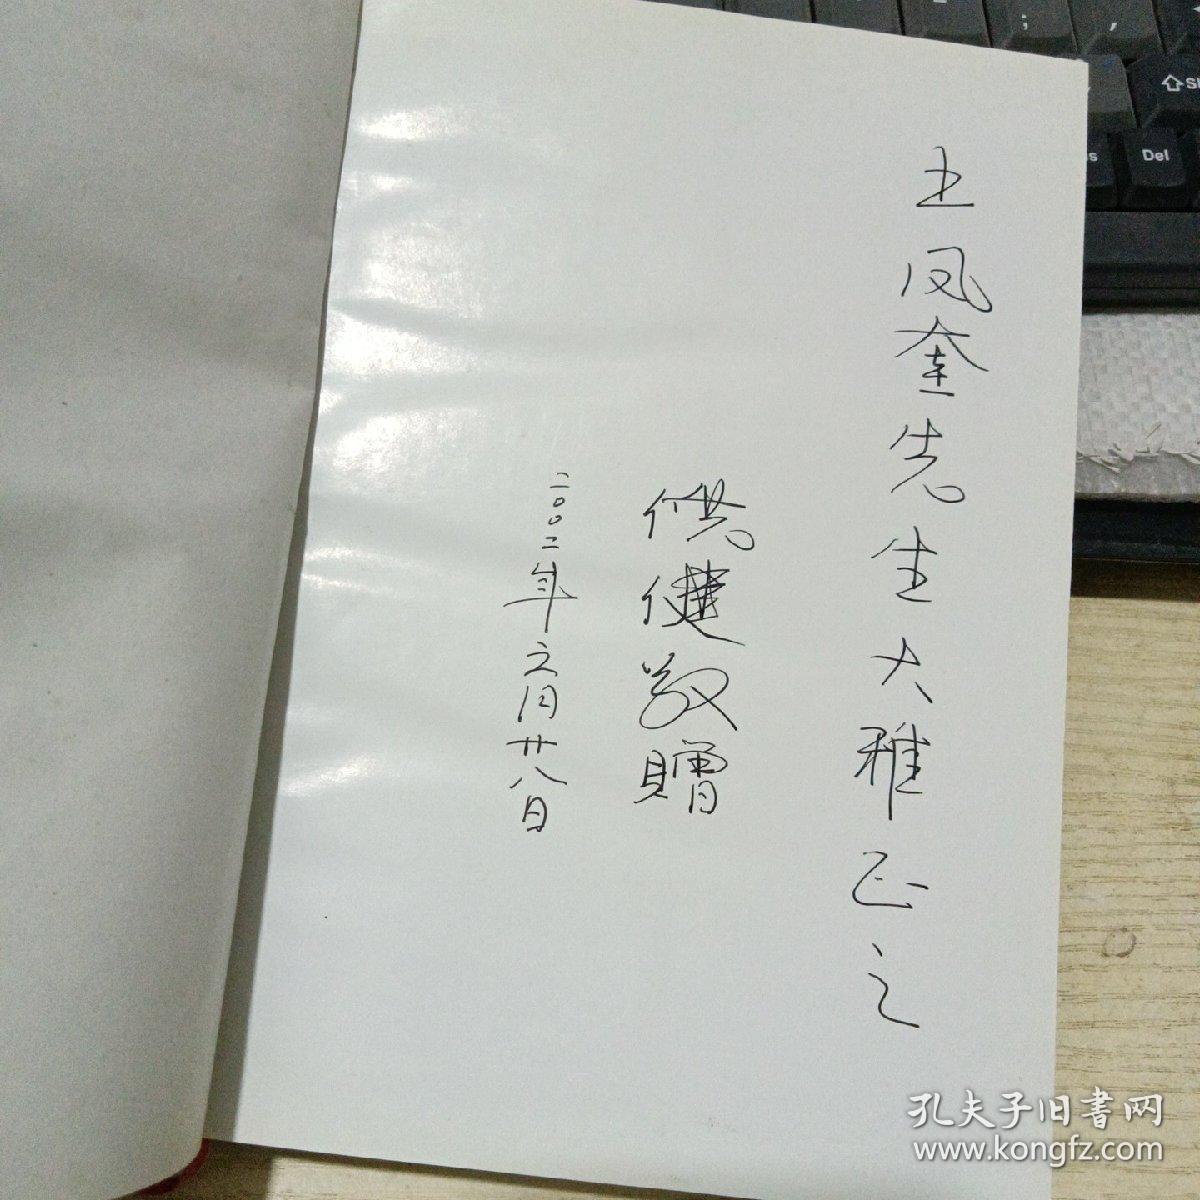 王凤奎先生大雅正之
供健敬赠
二〇〇二年六月廿八日
;
,
Del
孔夫子旧书网
www.kongfz.com